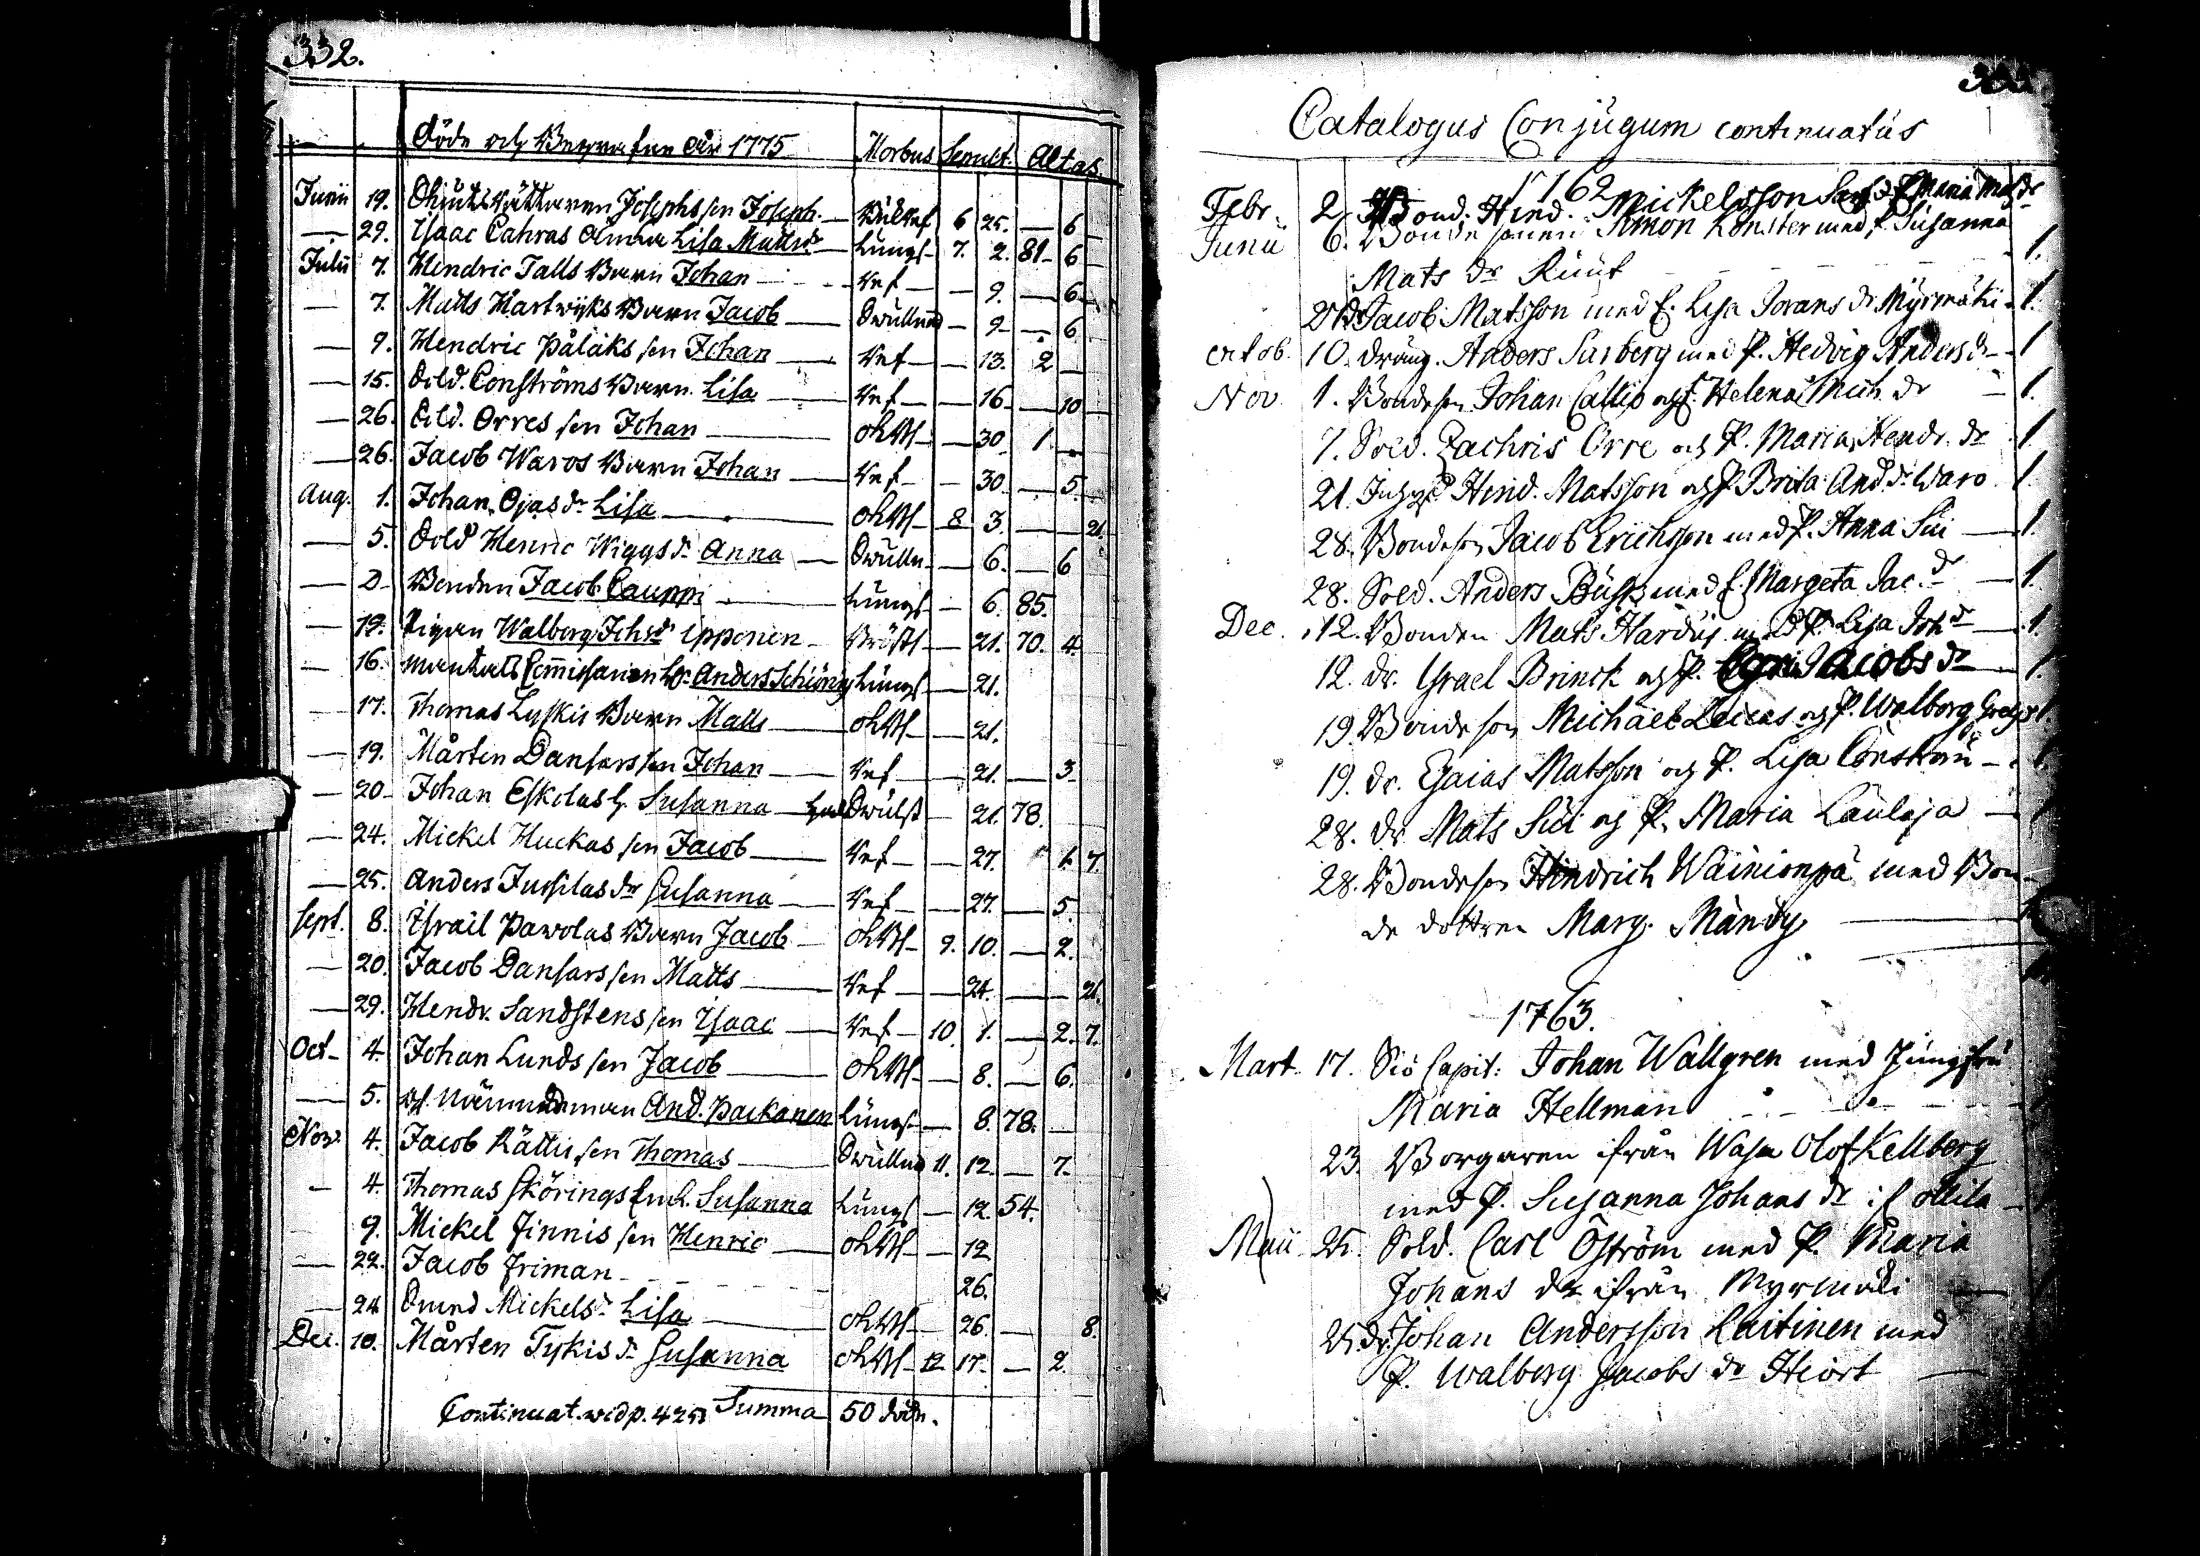 332.
Döde och Begrafne År 1775 Morbus Sepult. Ætas.
Junii 19. Josephs son Joseph. 6 25. — 6
— 29. Isaac Cahras Lisa Matts dr Lungs- 7. 2. 81 6
Julii 7. Hendric Talls Barn Johan — Ref — 9. — 6
— 7. Matts Hartwijks Barn Jacob — — 9 — 6
— 9. Hendric Påläks son Johan — Ref — 13. 2
— 15. Sold. Conströms Barn Lisa — Ref — 16 — 10
— 26. Sold. Orres son Johan — — 30 1.
— 26. Jacob Waros Barn Johan — Ref — 30 — 5
Aug. 1. Johan Ojas dr Lisa — 8 3. — 21.
— 5. Sold Henric Wiggs dr Anna — — 6. — 6
— D— Bonden Jacob Caupпi — Lungs — 6. 85.
— 12. Pigan Walborg Johs dr Ipponen — 21. 70. 4.
— 16. Mantals Commissarien Hr. Anders Schiöring Lungs — 21.
— 17. Thomas Lyskis Barn Matts — — 21.
— 19. Mårten Dansars son Johan — Ref — 21. — 3.
— 20. Johan Eskolas h. Susanna — — 21. 78.
— 24. Mickel Huckas son Jacob — Ref — 27. 1. 7.
— 25. Anders Jussilas dr Susanna — Ref — 27. — 5.
Sept. 8. Israil Pawolas Barn Jacob — 9. 10. — 2.
— 20. Jacob Dansars son Matts — Ref — 24. — 21.
— 29. Hendr. Sandstens son Isaac — Ref — 10. 1. — 2. 7.
Oct. 4. Johan Lunds son Jacob — — 8. — 6.
— 5. Nämndeman And. Packanen Lungs — 8. 78.
Nov. 4. Jacob Rättis son Thomas — 11. 12. — 7.
— 4. Thomas Skörings Susanna Lungs — 12. 54.
9. Mickel Finnis son Henric — — 12
— 22. Jacob Friman 26.
— 24 Mickels dr Lisa — — 26. — 8.
Dec. 10. Mårten Tykis dr Susanna — 12 17. — 2.
Continuat. wid p. 425 Summa 50 döde.
Catalogus Conjugum continuatus
1762
Febr. 2. Bond. Hind. Mickelsson Maria Mats dr
Junii 6. Bonde sonen Simon Konster med P. Susanna
Mats dr Ruut 1.
Jacob Matsson med P. Lisa Jorans dr Myrmäki 1.
Octob. 10. Dräng. Anders Surberg med P. Hedvig Anders dr 1
Nov. 1. Bondeson Johan Callis och P. Helena Mich. dr 1.
7. Sold. Zachris Orre och P. Maria Hendr. dr 1.
21. Hind. Matsson och P. Brita And. dr Waro 1
28. Bondeson Jacob Erichsson med P. Anna Sui 1.
28. Sold. Anders Busk med P. Margeta Jac. dr 1.
Dec. 12. Bonden Mats Hardus med P. Lisa Joh dr 1.
12. dr. Israel Brinck och P. Jacobs dr 1.
19. Bonde son Michael Lucas och P. Walborg 1.
19. dr. Esaias Matsson och P. Lisa
28. dr Mats Sui och P. Maria Laulaja
28. Bondeson Hindrich Wainionpä med Bon-
de dottren Marg. Mändy
1763.
Mart. 17. Siö Capit: Johan Wallgren med Jungfru
Maria Hellman
23. Borgaren ifrån Wasa Olof Kellberg
med P. Susanna Johans dr
Maii 25. Sold. Carl Öström med P. Maria
Johans dr ifrån Myrmäki
25. dr. Johan Andersson Laitinen med
P. Walborg Jacobs dr Hiort